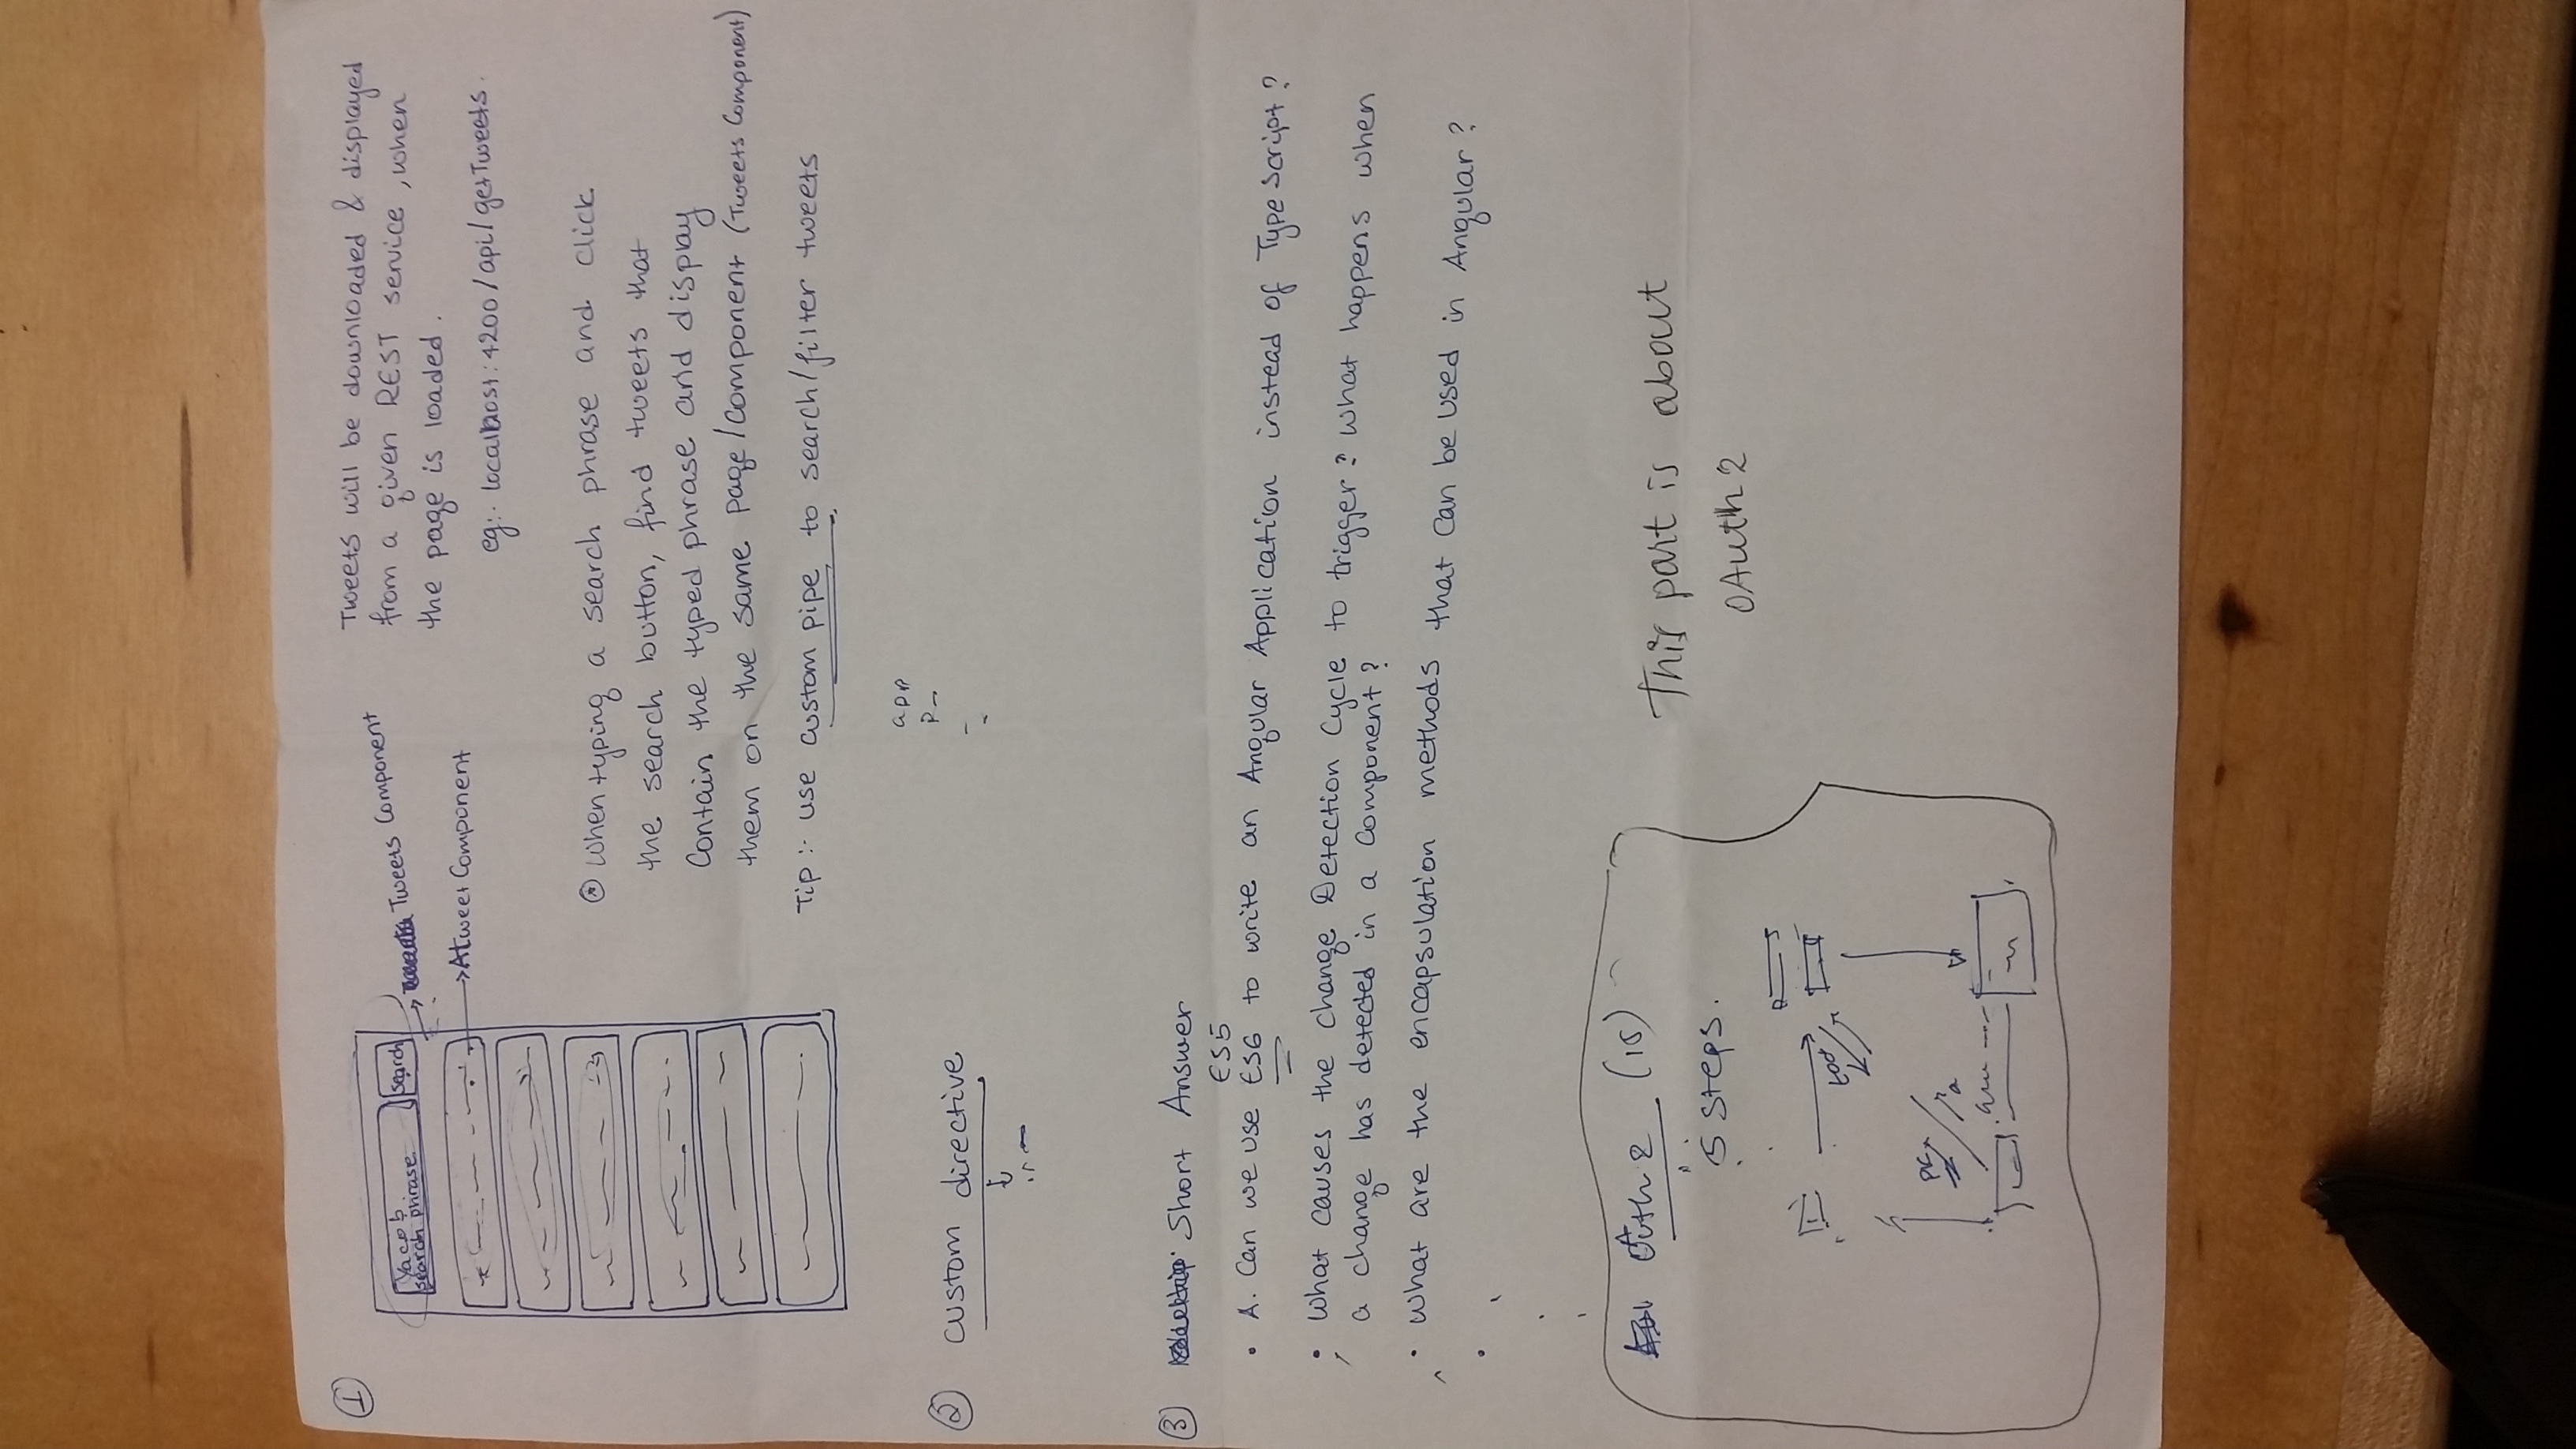 1
Yacob
search phrase
Search
Tweets Component
A tweet Component
Tweets will be downloaded & displayed
from a given REST service, when
the page is loaded.
eg:- localhost:4200/api/getTweets.
when typing a search phrase and click
the search button, find tweets that
contain the typed phrase and display
them on the same page/component (Tweets Component)
Tip:- use custom pipe to search/filter tweets
app
2 custom directive
3 Short Answer
ES5
• A. Can we use ES6 to write an Angular Application instead of TypeScript?
• What causes the change Detection Cycle to trigger? What happens when
a change has detected in a Component?
• What are the encapsulation methods that can be used in Angular?
OAuth 2 (15)
5 steps.
This part is about
OAuth 2